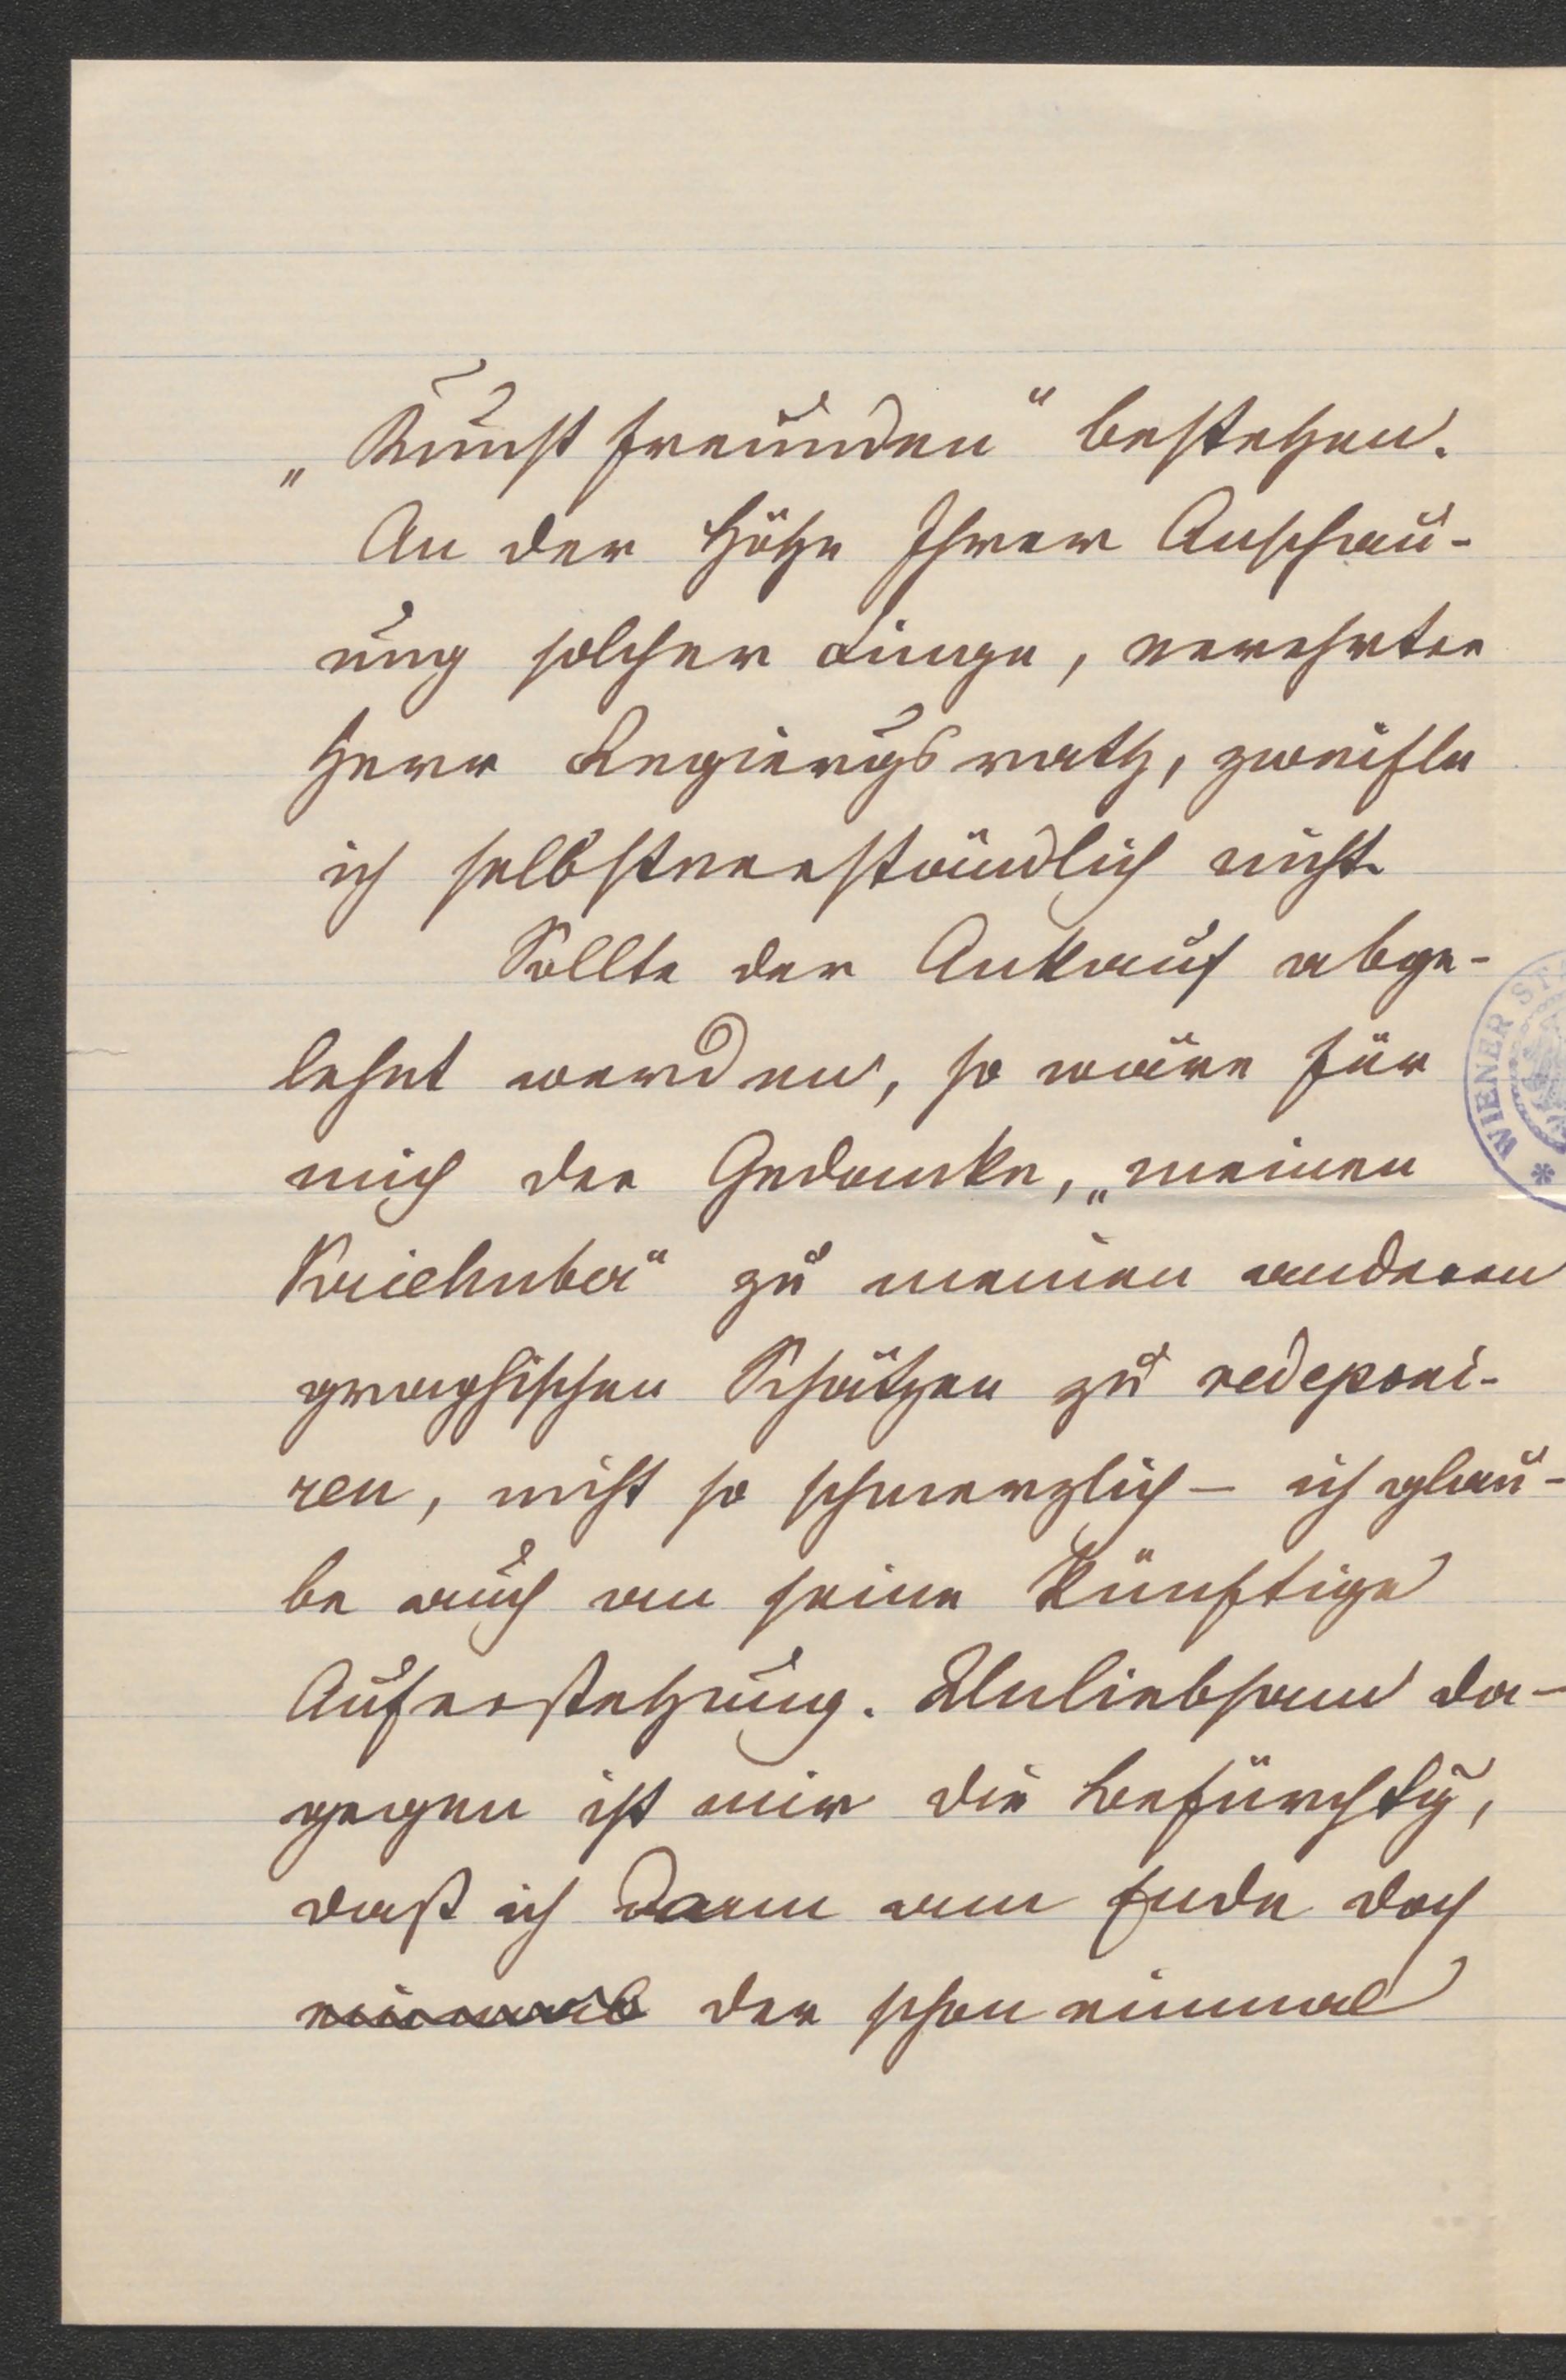 „Kunstfreunden" bestehen.
An der Höhe Ihrer Anschau-
ung solcher Dinge, verehrter
Herr Regierugsrath, zweifle
ich selbstverständlich nicht.
Sollte der Ankauf abge-
lehnt werden, so wäre für
mich der Gedanke, „meinen
Kriehuber" zu meinen anderen
graphischen Schätzen zu redeponi-
ren, nicht so schmerzlich – ich glau-
be auch an seine künftige
Auferstehung. Unliebsam da-
gegen ist mir die Befürchtg,
daß ich dann am Ende doch
der schon einmal
WIENER ST